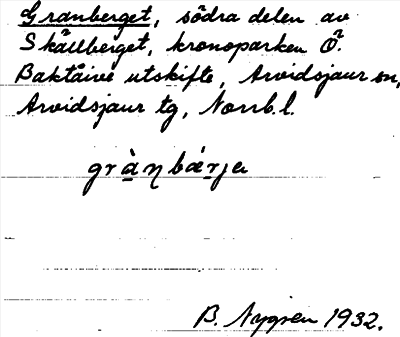 Granberget, södra delen av
Skällberget, kronoparken Ö.
Baktåive utskifte, Arvidsjaur sn,
Arvidsjaur tg, Norrb.l.
grànbárja
B. Nygren 1932.